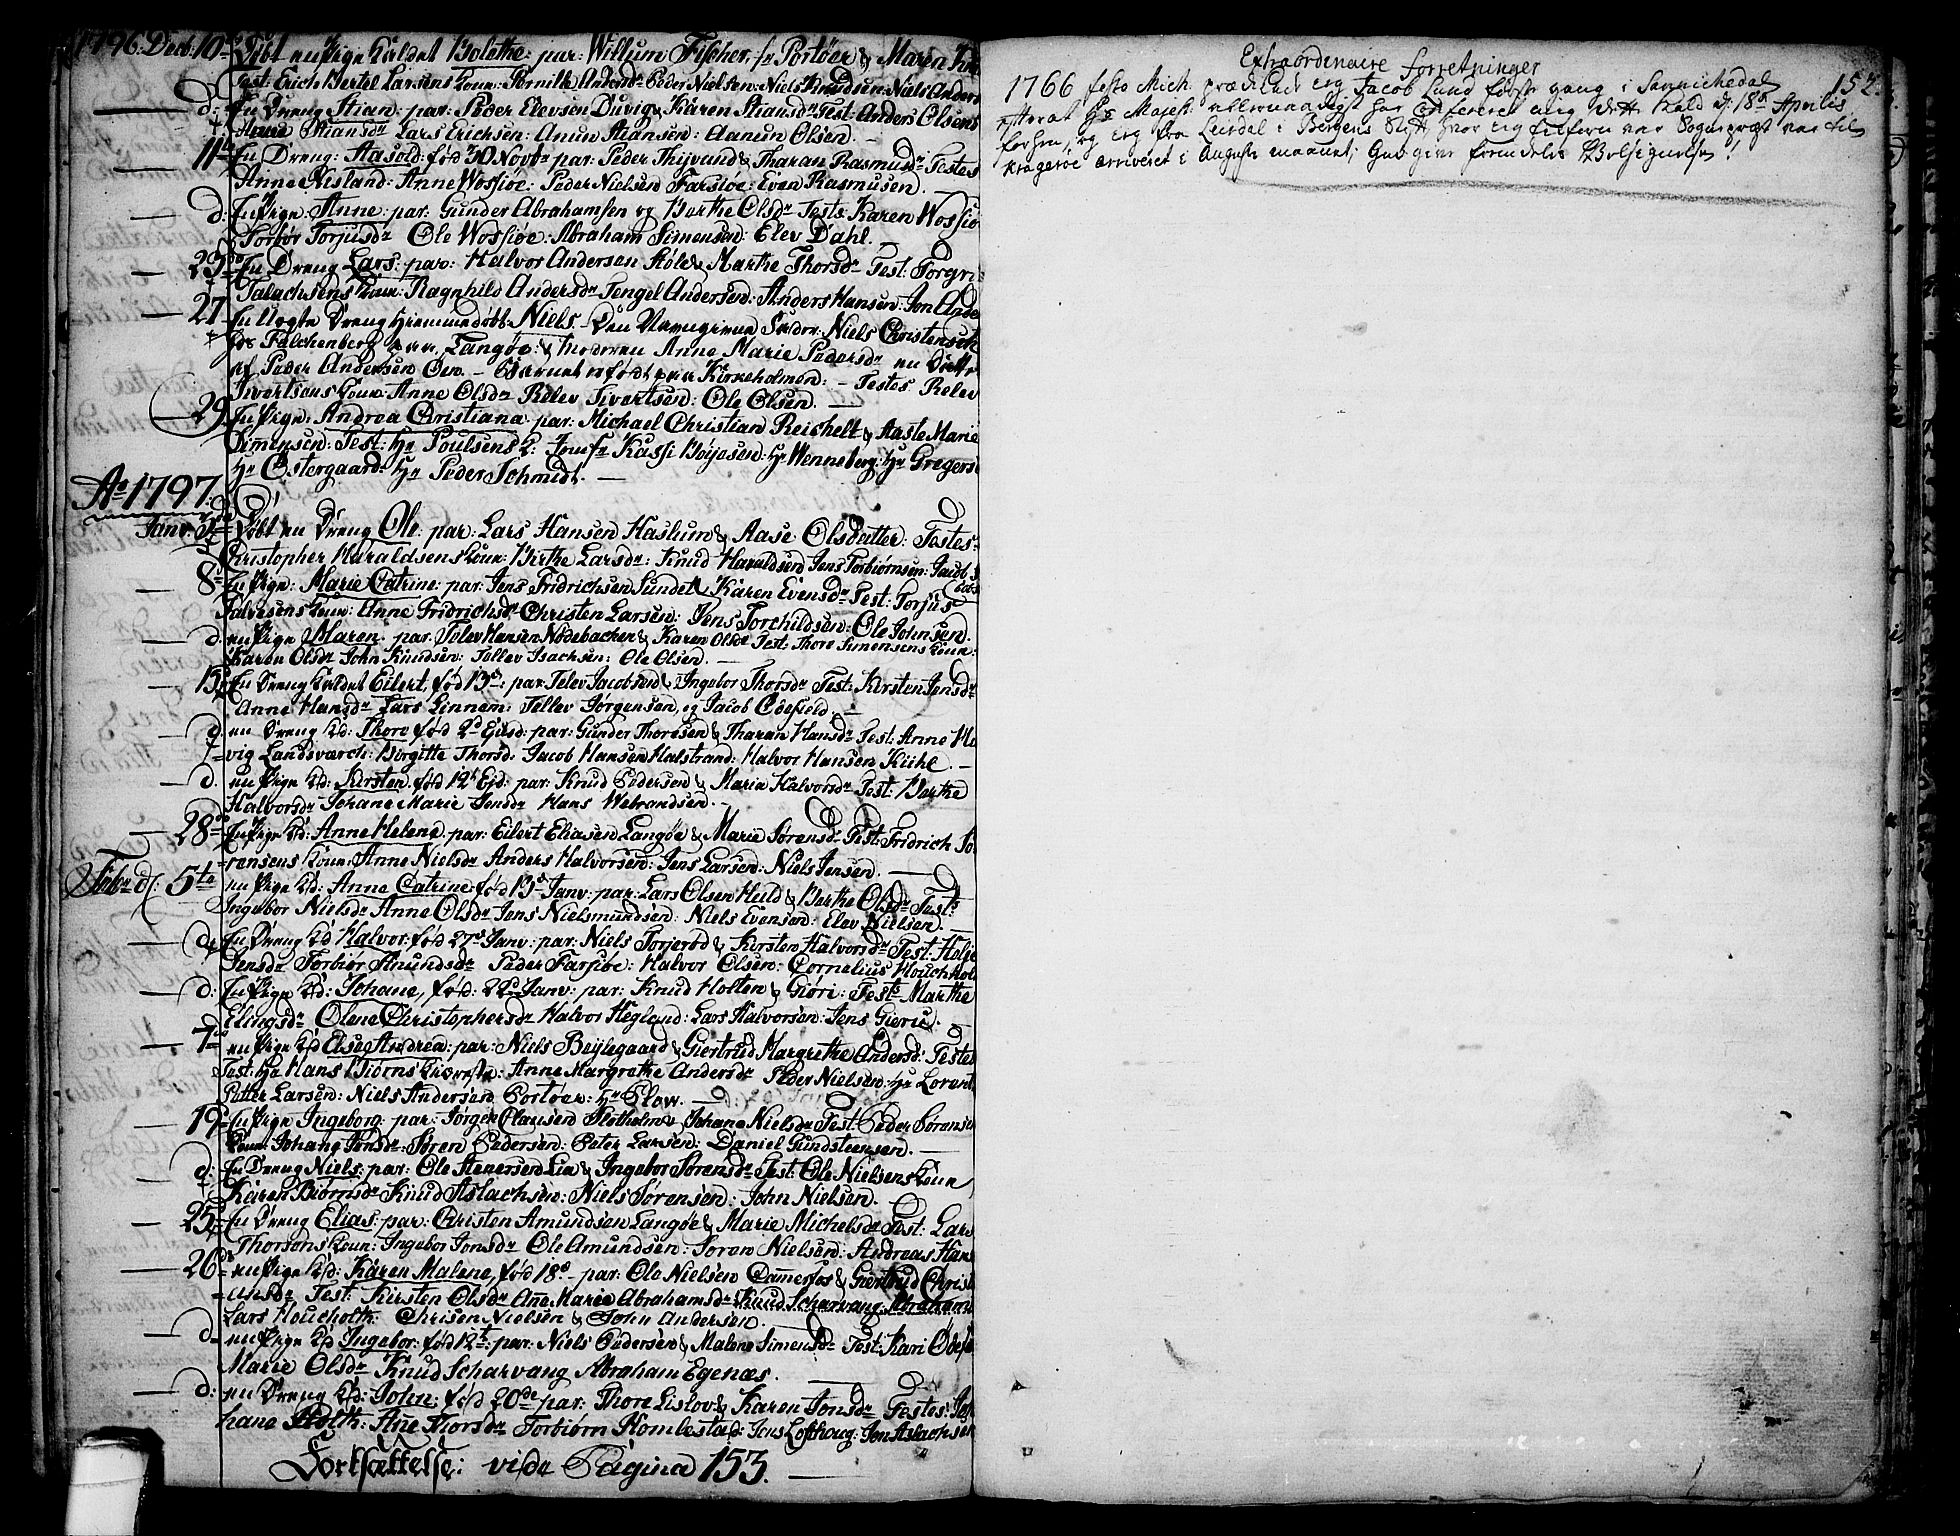 1796. Decb: 10de Døbt en Pige kaldet Bolethe: par: Willum Fischer, fr Portøer & Maren
Test: Erich Bertel Larsens Kone: Pernille Andersdr Peder Nielsen: Niels Knudsen: Niels Anders
— d: En Dreng Stian: par: Peder Elevsen Duvig & Karen Stiansdr Test: Anders Olsens
Kone Stiansdr Lars Erichsen: Amun Stiansen: Aanun Olsen.
— 11te En Dreng: Aasold: fød 30 Novbr par: Peder Thijvand & Tharan Rasmusdr Testes
Anne Risland: Anne Wossiøe: Peder Nielsen Farsiøe: Even Rasmusen.
— d: En Pige: Anne: par: Gunder Abrahamsen og Berthe Olsdr Test: Karen Wossiø
Torbør Torjusdr Ole Wossiøe: Abraham Simensen: Elev Dahl.
— 23de En Dreng Lars: par: Halvor Andersen & Marthe Thorsdr Test: Torgri
Talachsens Kone: Ragnhild Andersdr Tengel Andersen: Anders Hansen: Jon Ande
— 27 En Uægte Dreng Hiemmedøbt: Niels. — Den Navngivne Fader: Niels Christensen
Falchenberg paa Langøe: & Moderen Anne Marie Pedersdr en Datter
af Peder Andersen Øen. — Barnet er født paa Kirkeholmen: — Testes Relev
Sivertsens Kone: Anne Olsdr Relev Sivertsen: Ole Olsen. —
— 29 En Pige: Andrea Christiana: par: Michael Christian Reichelt & Aaste Marie
Simensen: Test: Hr Poulsens K: Jomfr Kassi Boyesen: Hr Wenneberg: Hr Gregers
Hr Østergaard: Hr Peder Schmidt. —
Ao 1797.
Janv: Døbt en Dreng Ole: par: Lars Hansen Haslum & Aase Olsdatter: Testes
Christopher Haraldsens Kone: Birthe Larsdr: Knud Haraldsen Jens Torbiørnsen: Jacob
— 8 En Pige: Marie Catrine: par: Jens Fridrichsen Sundet & Karen Evensdr Test: Torjus
Kone: Anne Fridrichsdr Christen Larsen: Jens Torchildsen: Ole Johnsen.
— d: en Pige Maren: par: Telev Hansen Nødebachen & Karen Olsdr Test: Thore Simensens Kone:
Karen Olsdr John Knudsen: Tellev Isachsen: Ole Olsen. —
— 15 En Dreng kaldet Eilert, fød 13de: par: Telev Jacobsen & Ingebor Thorsdr Test: Kirsten Jensdr
Anne Hansdr Lars Linnem: Tellev Jørgensen, og Jacob Ødefield. —
— d: en Dreng kd: Thore fød 2d Ejusd: par: Gunder Thoresen & Tharan Hansdr Test: Anne
vig Landsværch: Birgitte Thorsd: Jacob Hansen Halstrand: Halvor Hansen Kiihl. —
— d. en Pige kd: Kirsten, fød 12t Ejd: par: Knud Pedersen & Maria Halvorsdr Test: Berthe
Halvorsdr Johane Marie Jensdr Hans Webrandsen. —
— 28de En Pige kd: Anne Helene: par: Eilert Eliasen Langøe & Marie Sørensdr Test: Fridrich Sø
rensens Kone: Anne Nielsdr Anders Halvorsen: Jens Larsen: Niels Jensen. —
Febr d: 5te en Pige kd: Anne Catrine: fød 13d Janv: par: Lars Olsen Heild & Berthe Olsdr Test:
Ingebor Nielsdr Anne Olsdr Jens Nielsmundsen: Niels Evensen: Elev Nielsen. —
— d: En Dreng kd Halvor: fød 27d Janv: par: Niels Torjerød & Kirsten Halvorsdr Test: Helje
Jensdr Torbiør Anundsdr Peder Farsiøe: Halvor Olsen: Cornelius Houchholt
— d: En Pige kd: Johane, fød: 22d Janv: par: Knud Holten & Giøri: Test: Marthe
Elingsdr Olene Christophersdr Halvor Hegland: Lars Halvorsen: Jens Gierie. —
— 7de en Pige kd Else Andrea: par: Niels Beylegaard & Giertrud Margrethe Andersd: Testes
Test: Hr Hans Biørns Kiæreste: Anne Margrethe Andersdr Peder Nielsen: Hr Lorent
Petter Larsen: Niels Andersen Portøer: Hr Plow. —
— 19de En Pige Ingeborg: par: Jørgen Clausen Slotholm & Johane Nielsdr Test: Peder Sørensen
Kone: Johane Jensdr Søren Pedersen: Peter Larsen: Daniel Gundsteensen. —
— d: En Dreng Niels: par: Ole Stenersen Lia & Ingebor Sørensdr Test: Ole Nielsens Kone
Karen Biørnsdr Knud Aslachsen: Niels Sørensen: John Nielsen. —
— 25de En Dreng Elias: par: Christen Amundsen Langøe & Marie Michelsdr Test: Lars
Thorsens Kone: Ingebor Jonsdr Ole Amundsen: Søren Nielsen: Andreas Hans
— 26de en Pige kd: Karen Malene, fød 18de — par: Ole Nielsen Damerfos & Giertrud Christ
Test: Kirsten Olsdr Anne Marie Abrahamsdr Knud Scharvang: Abraham
Lars Houcholth: Chrisen Nielsen & John Andersen. —
— d: en Pige kd Ingebor: fød 12t: par: Niels Pedersen & Malene Simensdr Test: Kari Ødefi
Marie Olsdr Knud Scharvang Abraham Egenæs.
— d: en Dreng kd: John: fød 20de par: Thore Lislov & Karen Jonsdr Testes: Jo
hane Holth: Ane Thorsdr Torbiørn Homlestad: Jens Lofthaug: Jon Aslachsen
Fortsættelse: vide Pagina 153. —
Extraordinaire forretninger
152.
1766 festo Mich: prædikede ieg Jacob Lund første gang i Sannichedal
efterat Hs Majest: allernaadigst har Conferert mig dette Kald d: 18de Aprilis
forhen, og ieg fra Leirdal i Bergens Stift hvor ieg tilforn var Sognepræst var til
Kragerøe arriveret i Augusti maanet; Gud give fremdeles Velsignelse!